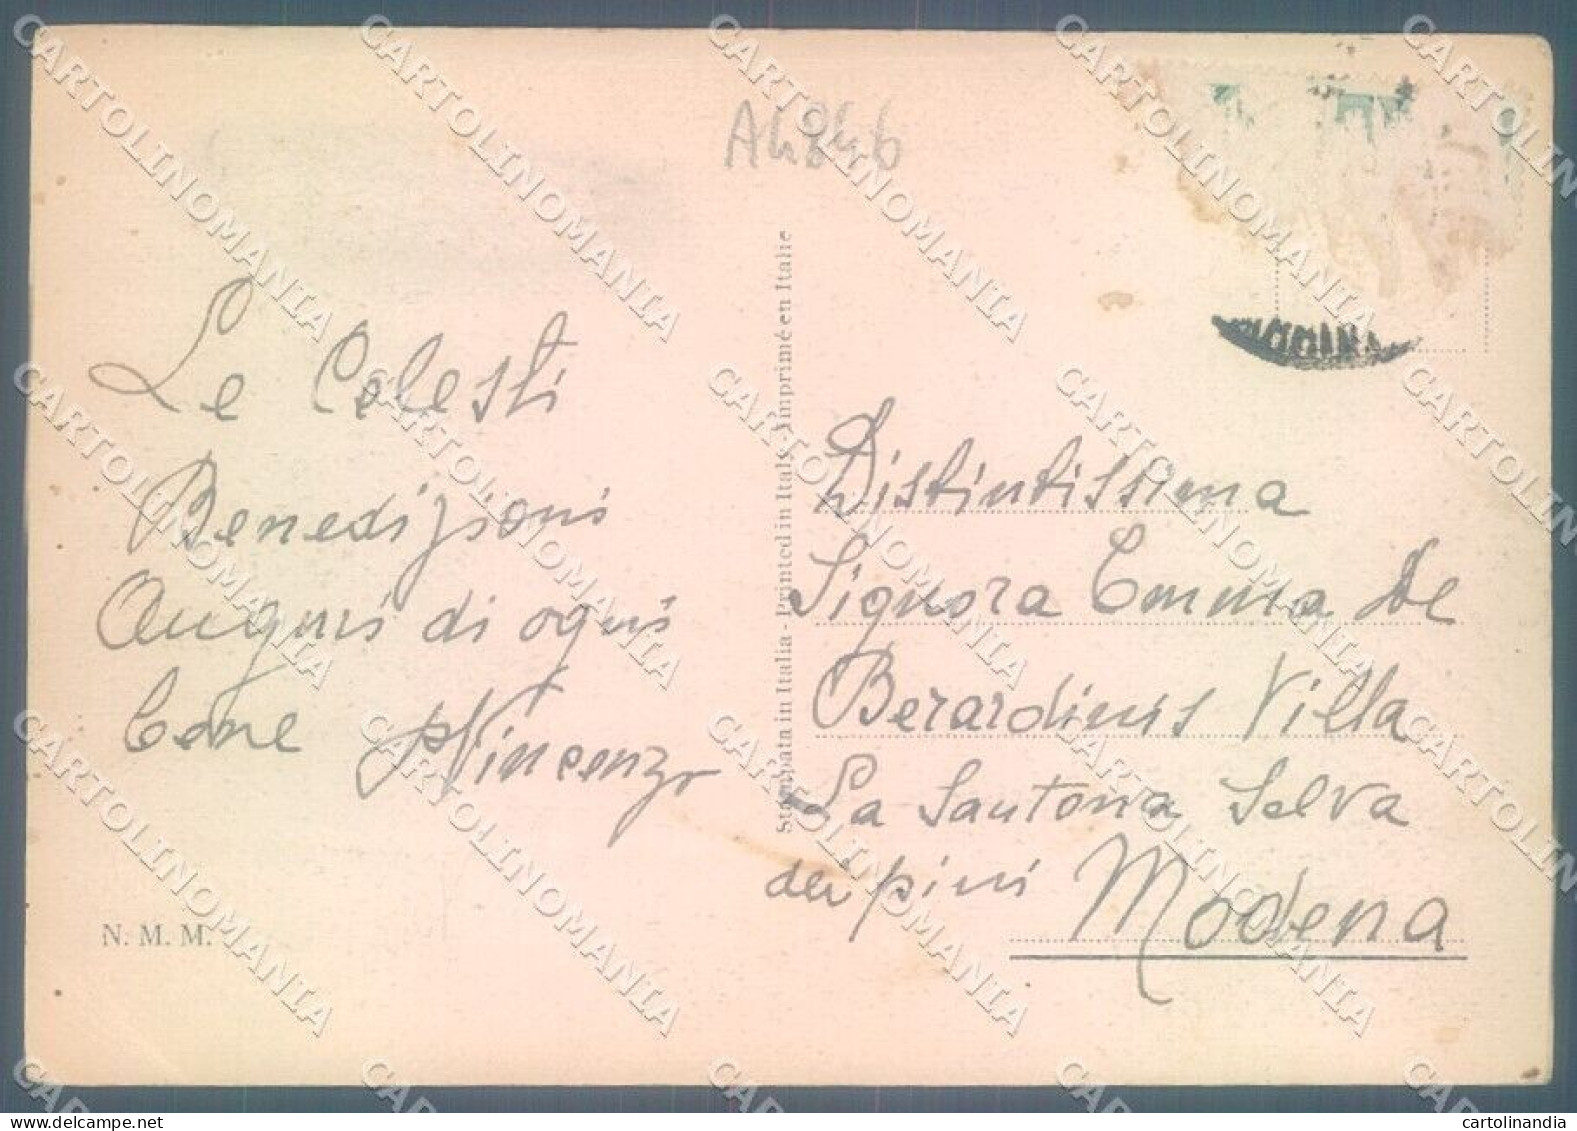 A4846
Le Celesti
Benedizioni
Auguri di ogni
bene P Vincenzo
N. M. M.
Stampata in Italia - Printed in Italy - Imprimé en Italie
Distintissima
Signora Emma De
Berardinis Villa
La Santona Selva
dei pini Modena
CARTOLINOMANIA
cartolinandia